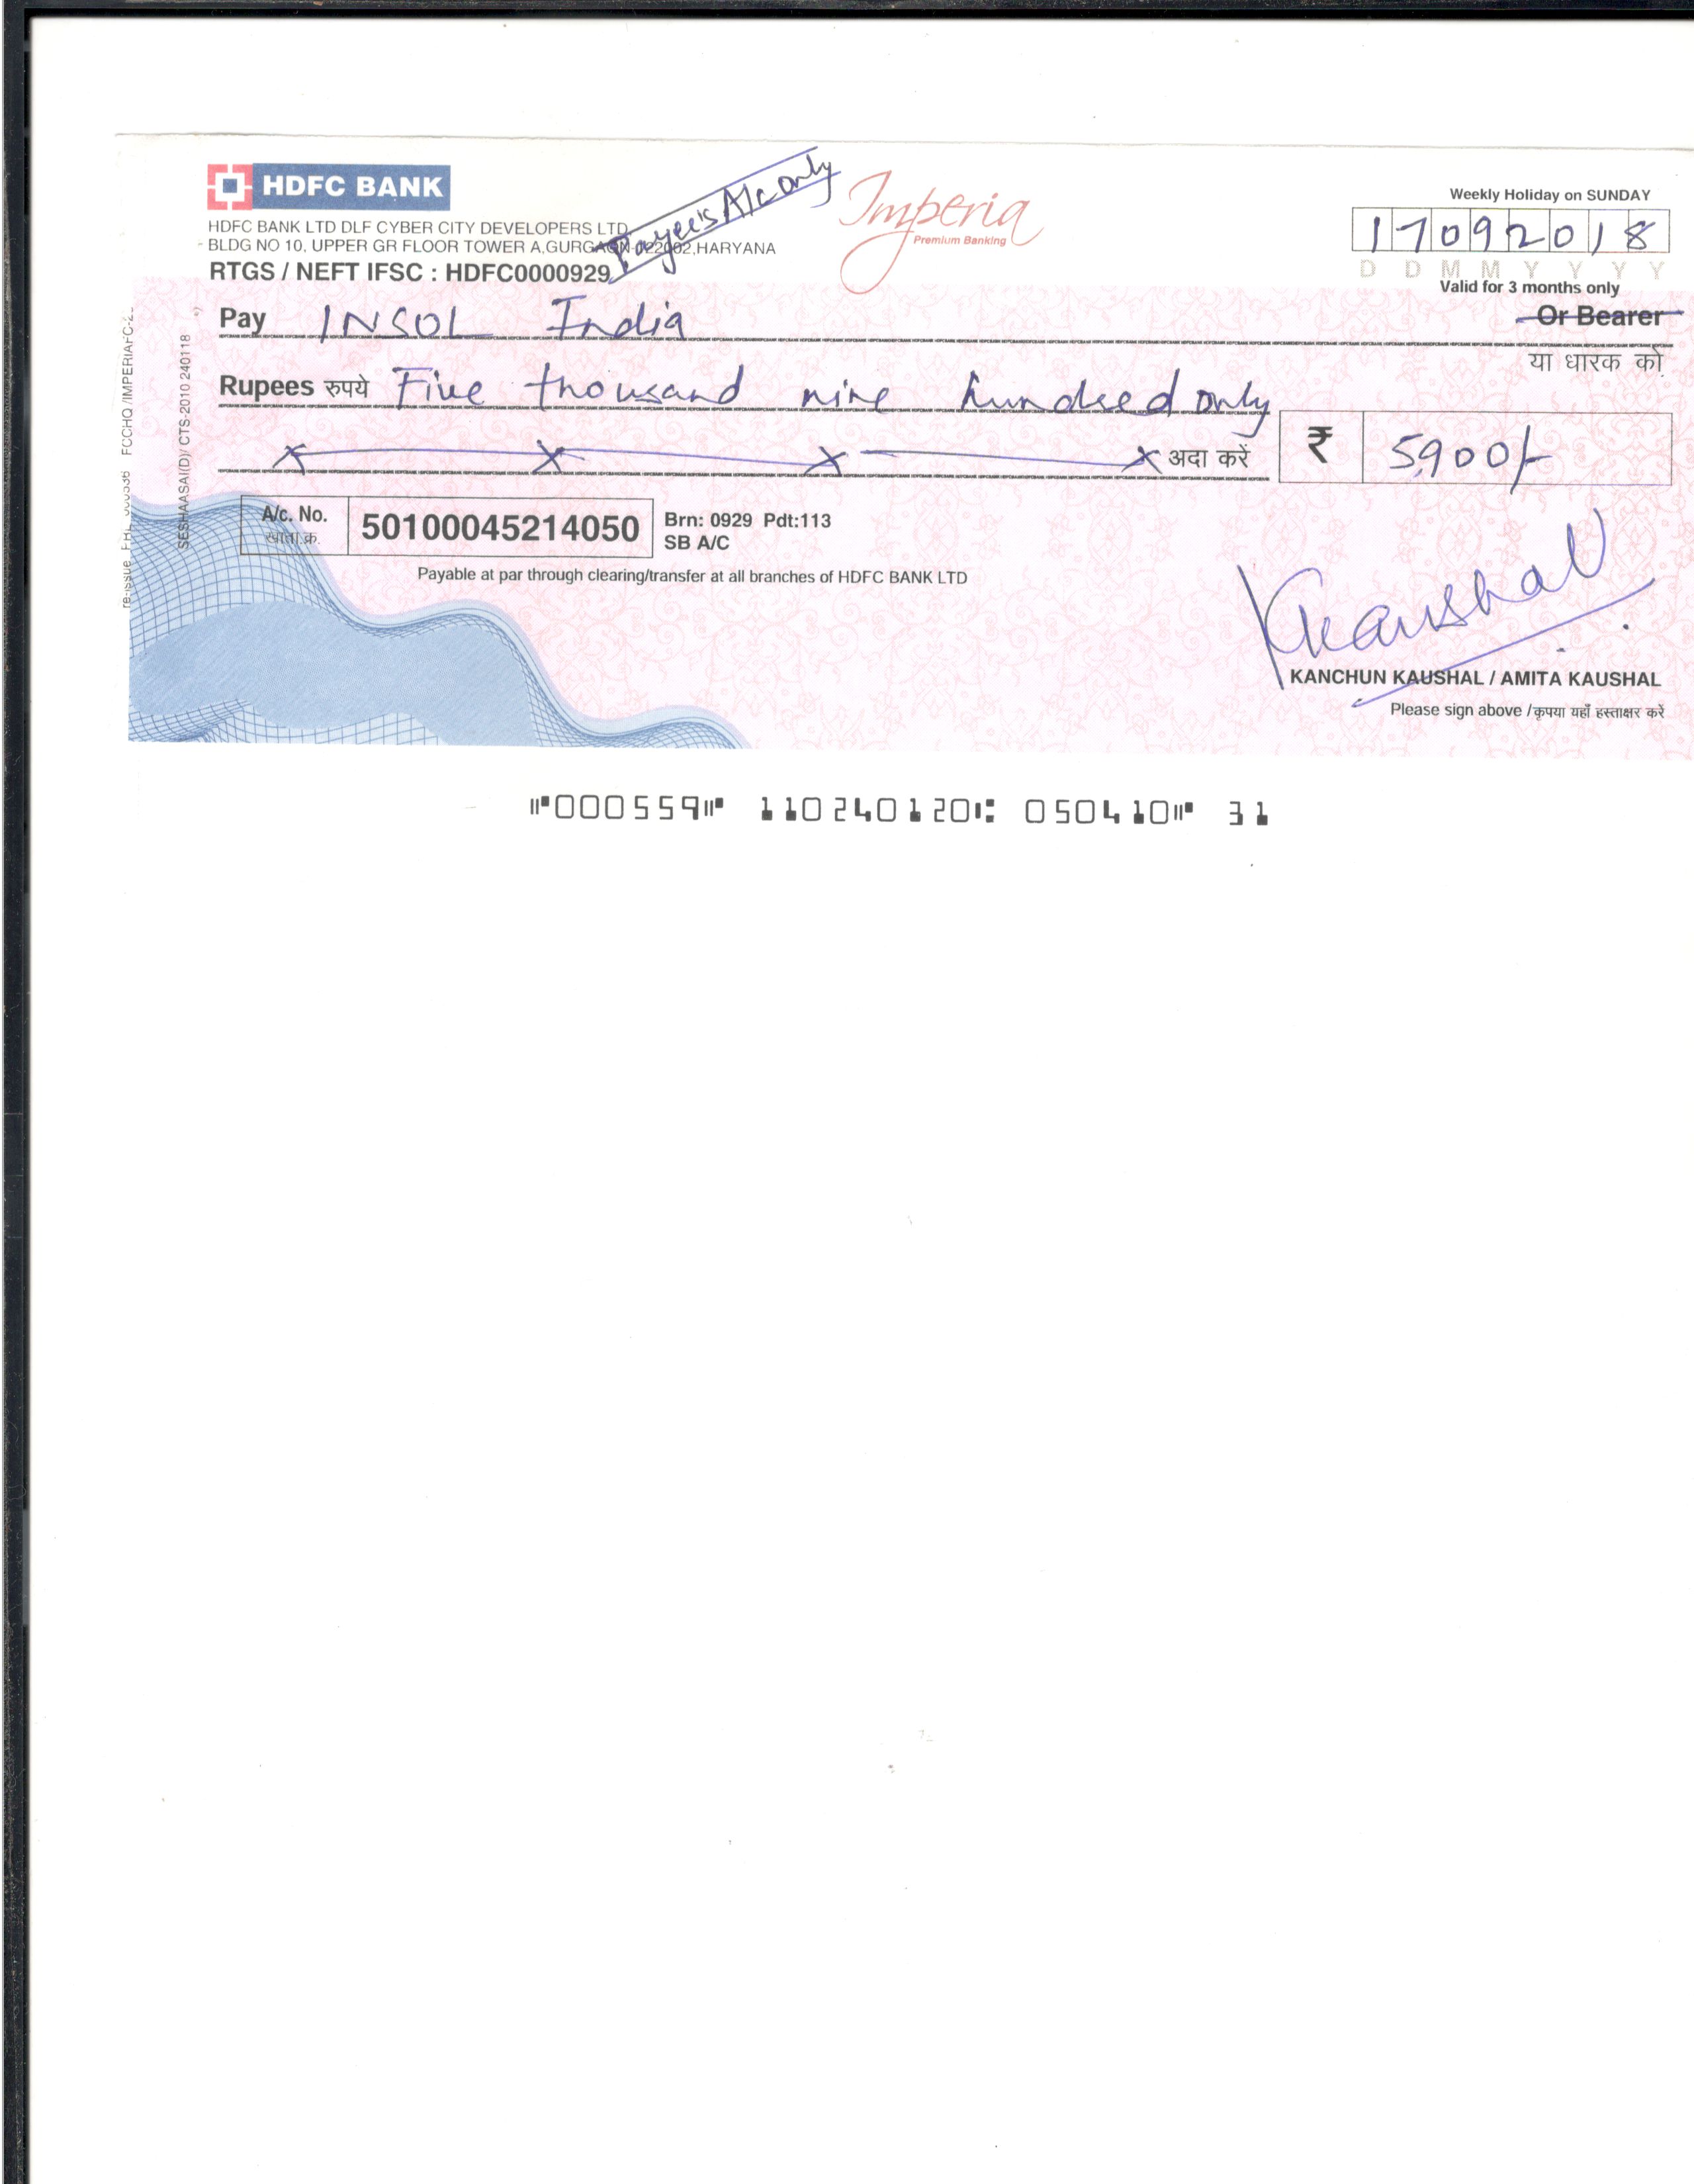 HDFC BANK
HDFC BANK LTD DLF CYBER CITY DEVELOPERS LTD,
BLDG NO 10, UPPER GR FLOOR TOWER A,GURGAON-122002,HARYANA
RTGS / NEFT IFSC : HDFC0000929
Payee's A/c only
Imperia
Premium Banking
Weekly Holiday on SUNDAY
17092018
D D M M Y Y Y Y
Valid for 3 months only
Pay INSOL India Or Bearer
या धारक को
Rupees रुपये Five thousand nine hundred only
अदा करें ₹ 5,900/-
A/c. No.
खाता क्र.
50100045214050
Brn: 0929 Pdt:113
SB A/C
Payable at par through clearing/transfer at all branches of HDFC BANK LTD
Kaushal
KANCHUN KAUSHAL / AMITA KAUSHAL
Please sign above / कृपया यहाँ हस्ताक्षर करें
SESHAASAI(D)/ CTS-2010 240118
⑈000559⑈ 110240120⑆ 050410⑈ 31